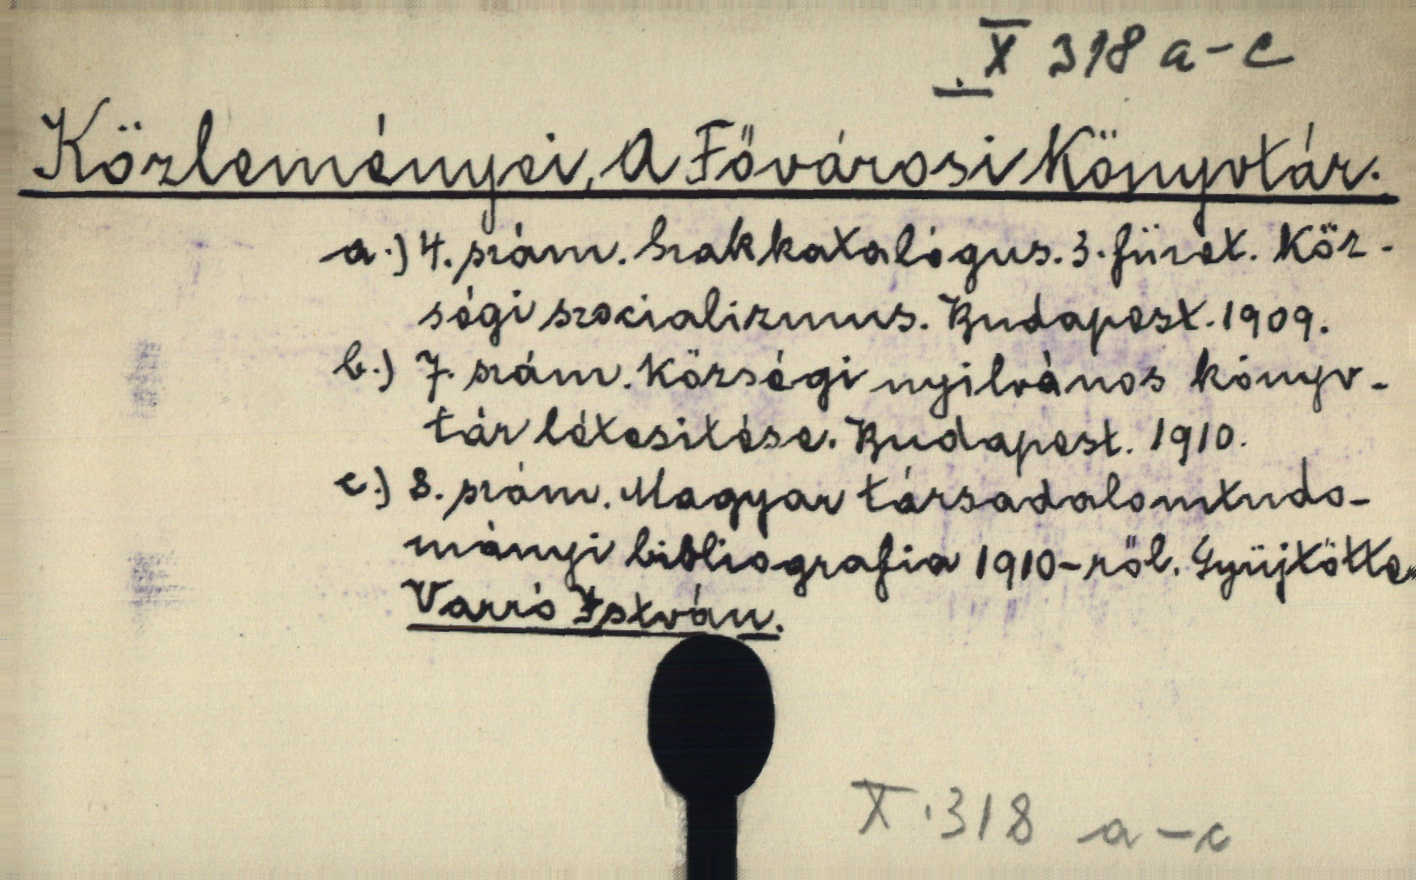 X 318 a-c
Közleményei, A Fővárosi Könyvtár.
a.) 4. szám. Szakkatalógus. 3. füzet. Köz-
ségi szocializmus. Budapest. 1909.
b.) 7. szám. Községi nyilvános könyv-
tár létesitése. Budapest. 1910.
c.) 8. szám. Magyar társadalomtudo-
mányi bibliografia 1910-ről. Gyüjtötte
Varró István.
X. 318 a-c